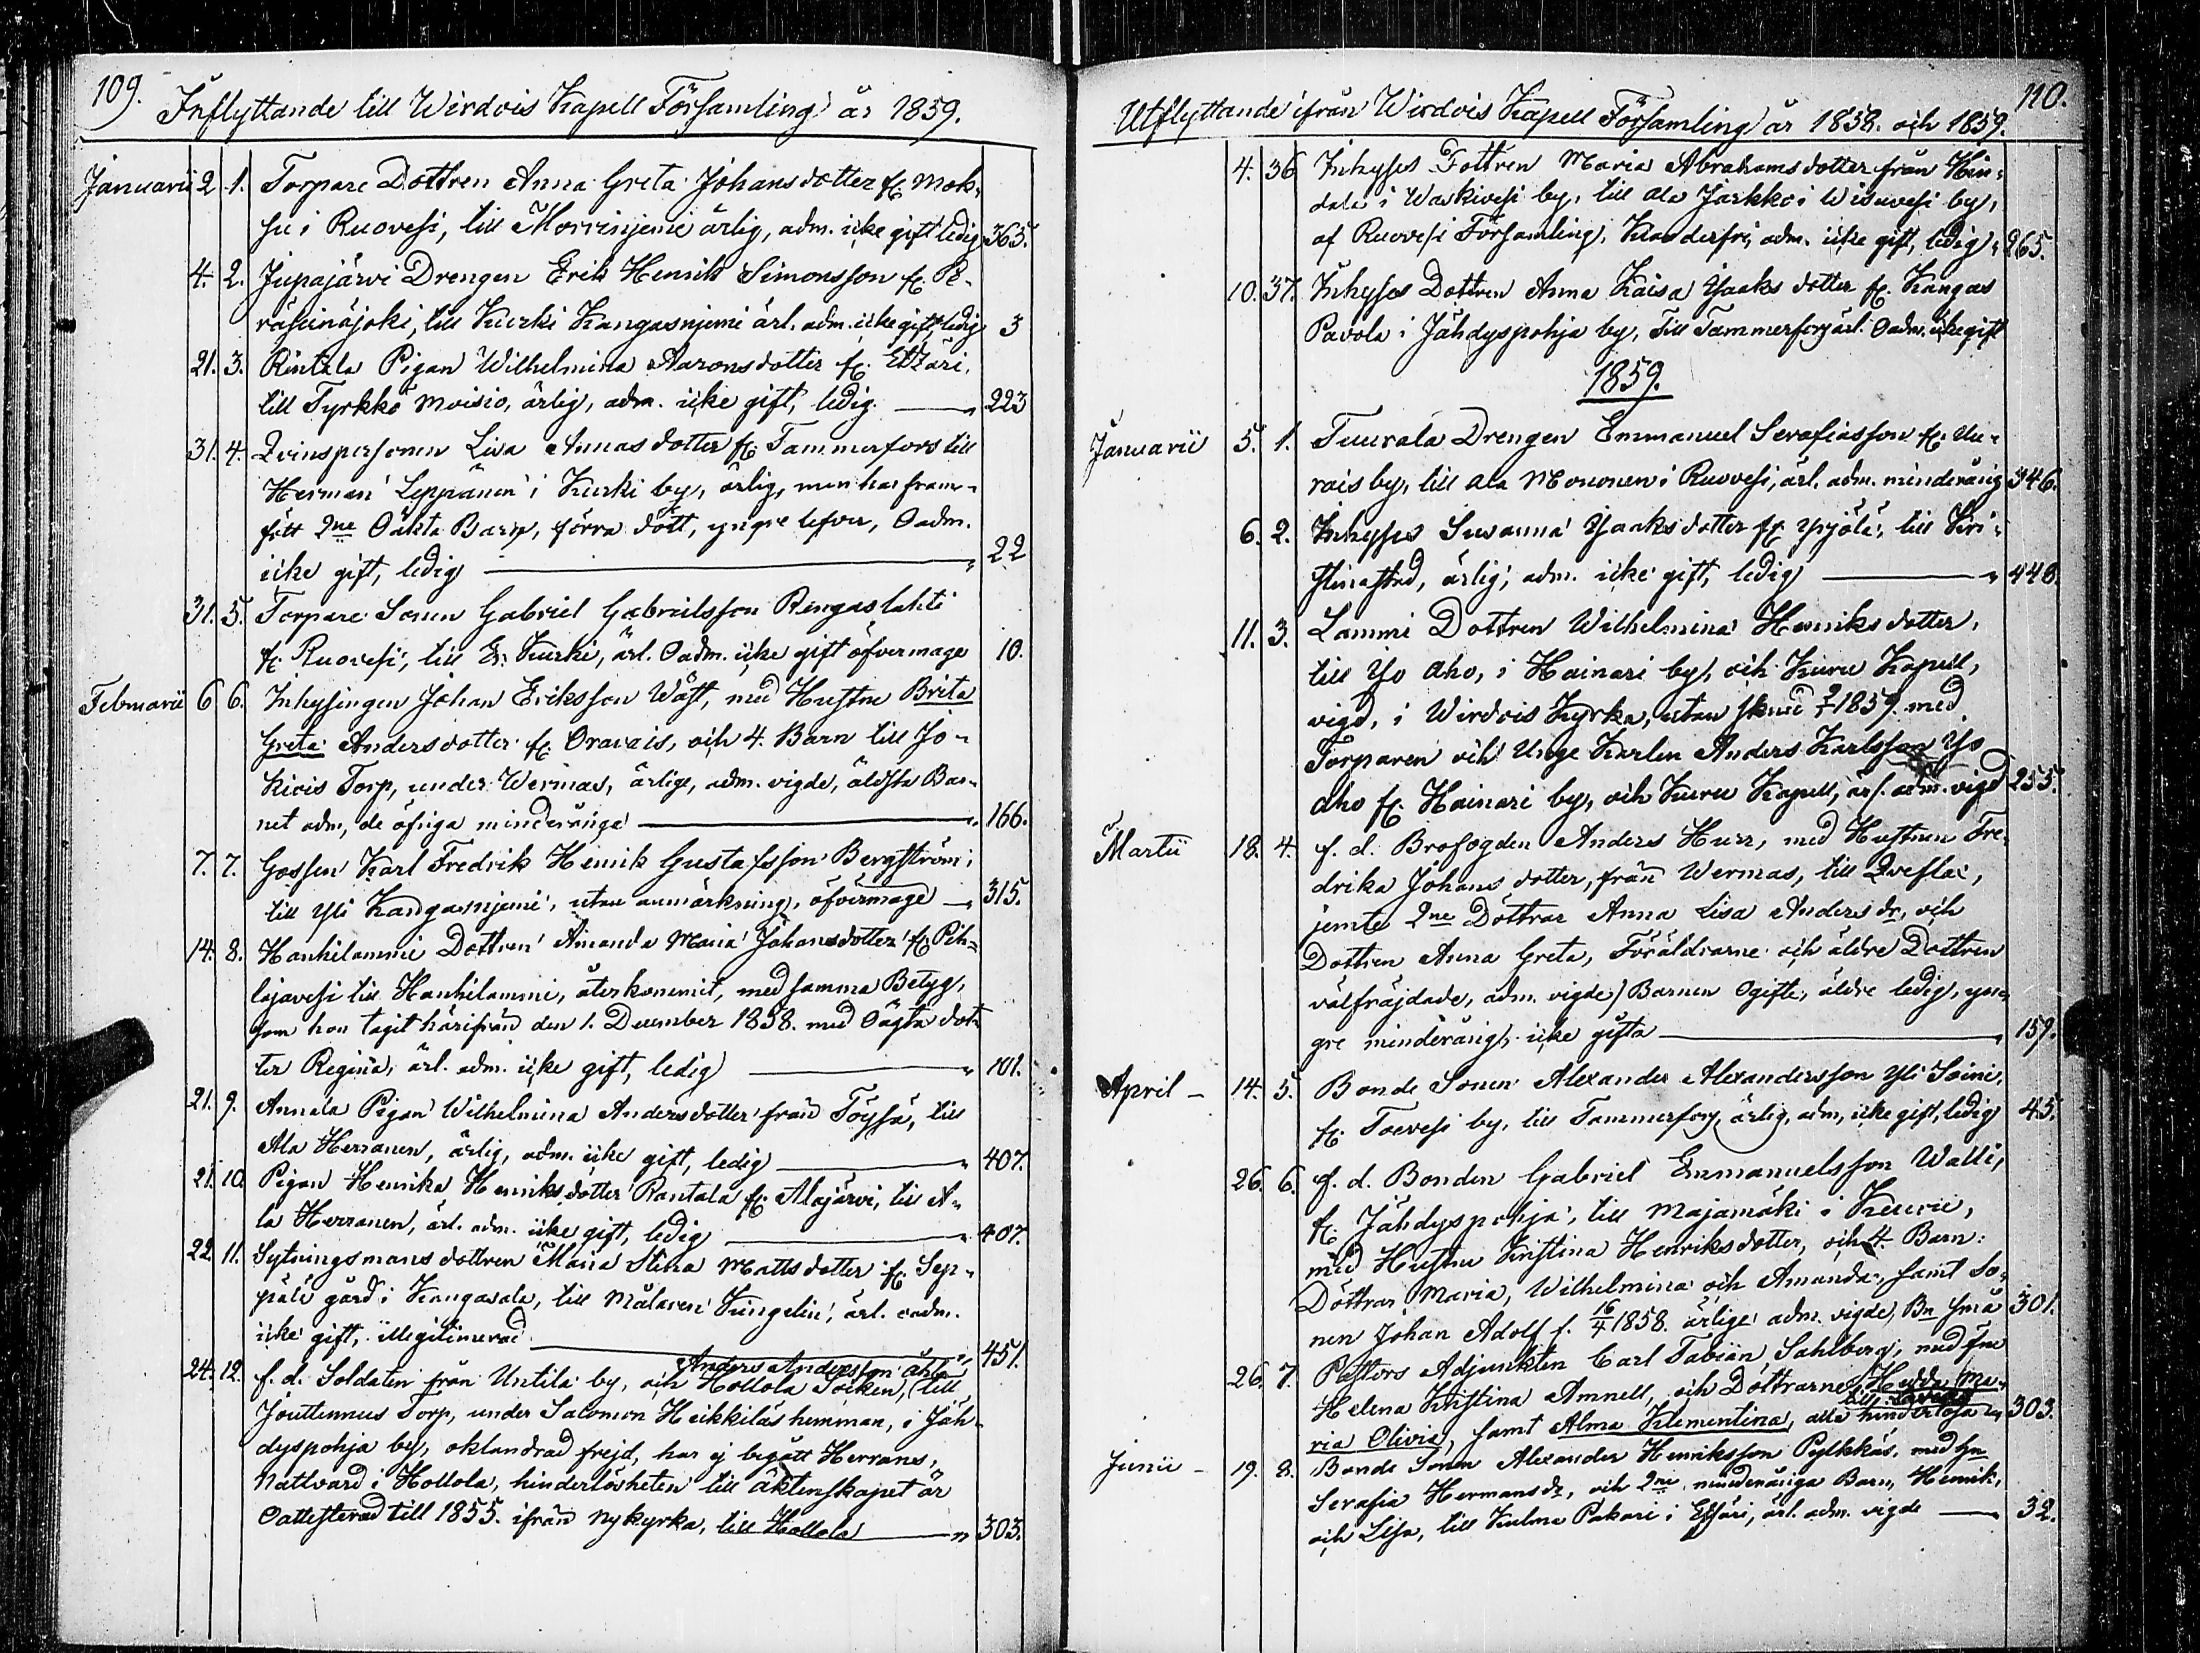 109.
Inflyttande till Wirdois Kapell Församling år 1859.
Januarii 2 1. Torpare Dottren Anna Greta Johansdotter fr. Mok-
su i Ruovesi, till Morrinjemi ärlig, adm. icke gift ledig 365.
4. 2. Jupajärvi Drengen Erik Henrik Simonsson fr. Pe-
räseinäjoki, till Kurki Kangasnjemi ärl. adm. icke gift, ledig 3
21. 3. Rintala Pigan Wilhelmina Aaronsdotter fr. Etzäri,
till Tyrkkö Moisio, ärlig, adm. icke gift, ledig. — 223
31. 4. Qvinspersonen Lisa Annasdotter fr. Tammerfors till
Herman Leppänen i Kurki by, ärlig, men har fram-
födt 2ne Oäkta Barn, förra dödt, yngre lefver, Oadm.
icke gift, ledig — 22
31. 5. Torpare Sonen Gabriel Gabrielsson Rengaslahti
fr. Ruovesi, till Er. Kurki, ärl. Oadm. icke gift öfvermage 10.
Februarii 6 6. Inhysingen Johan Eriksson Wäst, med Hustru Brita
Greta Andersdotter fr. Oravais, och 4. Barn till Jo-
kiois Torp, under Wermas, ärlige, adm. vigde, äldsta Bar-
net adm, de öfriga minderårige — 166.
7. 7. Gossen Karl Fredrik Henrik Gustafsson Bergström,
till Yli Kangasnjemi, utan anmärkning, öfvermage — 315.
14. 8. Hanhilammi Dottren Amanda Maria Johansdotter fr. Pih-
lajavesi till Hanhilammi, återkommit, med samma Betyg,
som hon tagit härifrån den 1. December 1858. med Oägta dot-
ter Regina, ärl. adm. icke gift, ledig — 101.
21. 9. Annala Pigan Wilhelmina Andersdotter från Töysä, till
Ala Herranen, ärlig, adm. icke gift, ledig — 407.
21. 10. Pigan Henrika Henriksdotter Rantala fr. Alajärvi, till A-
la Herranen, ärl. adm. icke gift, ledig — 407.
22. 11. Sytningsmans dottren Maria Stina Mattsdotter fr. Sep-
pälä gård i Kangasala, till Målaren Kungelin, ärl. oadm.
icke gift, illegitimerad — 451.
Anders Andersson Åhl
24. 12. f. d. Soldaten från Untila by, och Hollola Socken, till
Jouttennus Torp, under Salomon Heikkiläs hemman, i Jäh-
dyspohja by, oklandrad frejd, har ej begått Herrans,
Nattvard i Hollola, hinderlösheten till äktenskapet är
Oattesterad till 1855. ifrån Nykyrka, till Hollola — 303.
110.
Utflyttande ifrån Wirdois Kapell Församling år 1858. och 1859.
4. 36 Inhyses Dottren Maria Abrahamsdotter från Hin-
dala i Waskivesi by, till Ala Jarkko i Wisuvesi by,
af Ruovesi Församling, Klanderfri, adm. icke gift, ledig, 265.
10. 37. Inhyses Dottren Anna Kaisa Isaksdotter fr. Kangas
Pavola i Jähdyspohja by, Till Tammerfors ärl. Oadm. icke gift
1859.
Januarii 5. 1. Tuurala Drengen Emmanuel Serafiasson fr. Uu-
rais by, till Ala Mononen i Ruovesi, ärl. adm. minderårig 346.
6. 2. Inhyses Susanna Isaksdotter fr. Ypjölä, till Kri-
stinestad, ärlig, adm. icke gift, ledig — 448.
11. 3. Lammi Dottren Wilhelmina Henriksdotter,
till Yo Aho, i Hainari by, och Kuru Kapell,
vigd, i Wirdois Kyrka, utan 1859. med
Torparen och Unge Karlen Anders Karlsson Yo
Aho fr. Hainari by, och Kuru Kapell, ärl. adm. vigd 255.
Martii 18. 4. f. d. Brofogden Anders Hurr, med Hustrun Fre-
drika Johansdotter, från Wermas, till Qveflax,
jemte 2ne Döttrar Anna Lisa Andersdr, och
Dottren Anna Greta, Föräldrarne och äldre Dottren
välfräjdade, adm. vigde, Barnen Ogifte, äldre ledig, yn-
gre minderårig, icke gifta — 159.
April – 14. 5. Bonde Sonen Alexander Alexandersson Yli Soini,
fr. Toevesi by, till Tammerfors, ärlig, adm, icke gift, ledig 45.
26. 6. f. d. Bonden Gabriel Emmanuelsson Walli,
fr. Jähdyspohja, till Majamäki i Keuru,
med Hustru Kristina Henriksdotter, och 4. Barn:
Döttrar Maria, Wilhelmina och Amanda, samt So-
nen Johan Adolf f. 16/4 1858. ärlige adm. vigde, Bn små 301.
26. 7. Pastors Adjunkten Carl Fabian Sahlberg, med fru
Helena Kristina Amnell, och Döttrarne Hedda Ma-
ria Olivia, samt Alma Klementina, alla hinderlösa 303.
Junii – 19. 8. Bonde Sonen Alexander Henriksson Pylkkäs, med Hu
Serafia Hermansdr, och 2ne minderåriga Barn, Henrik,
och Lisa, till Kulma Pakari i Etsäri, ärl. adm. vigde — 32.